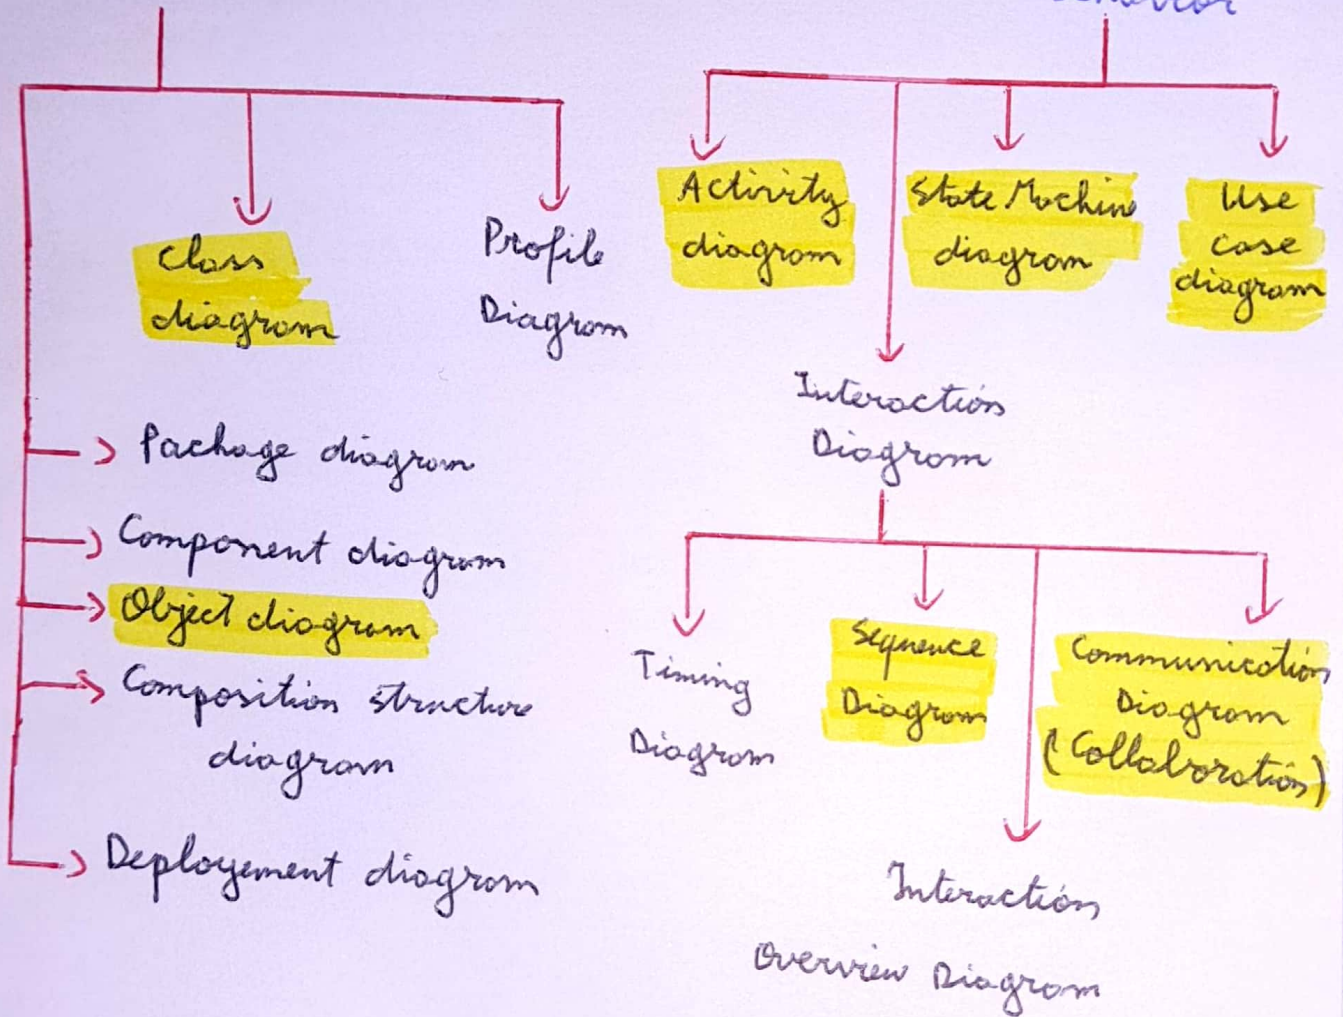 Behavior
Class
diagram
Profile
Diagram
Package diagram
Component diagram
Object diagram
Composition structure
diagram
Deployement diagram
Activity
diagram
State Machine
diagram
Use
case
diagram
Interaction
Diagram
Timing
Diagram
Sequence
Diagram
Communication
Diagram
(Collaboration)
Interaction
Overview Diagram